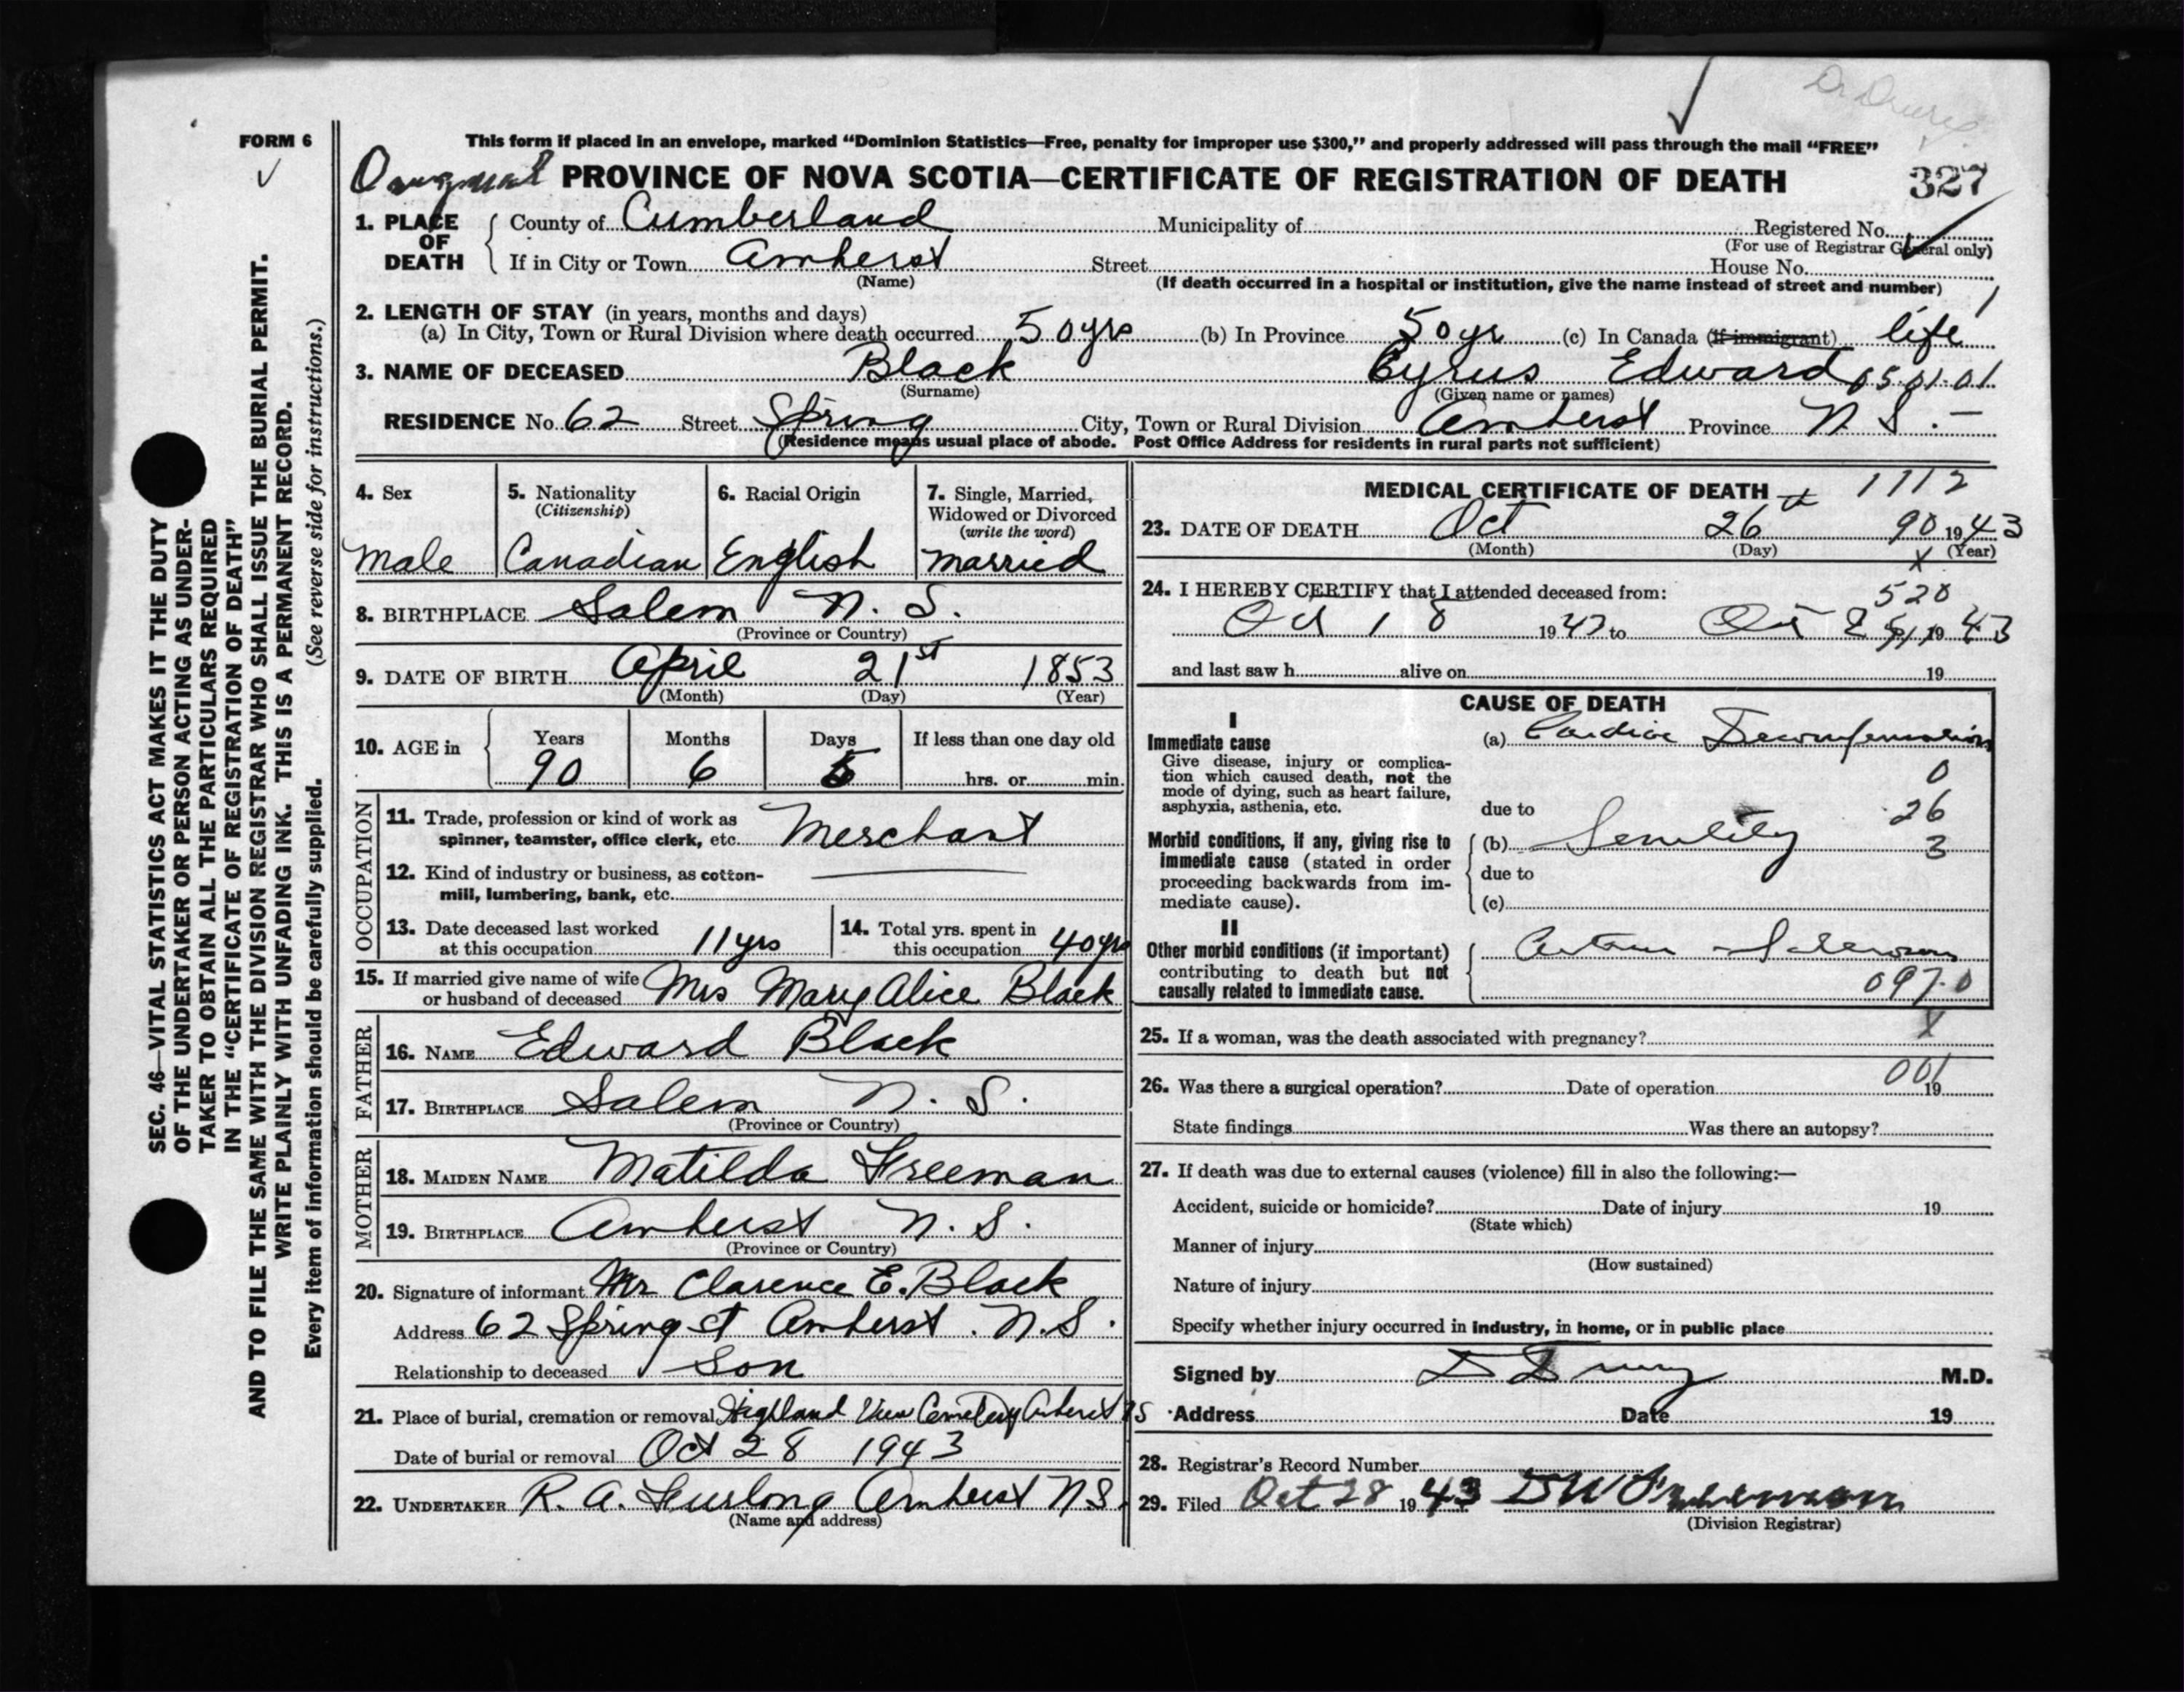 Dr Drury
FORM 6
This form if placed in an envelope, marked "Dominion Statistics—Free, penalty for improper use $300," and properly addressed will pass through the mail "FREE"
Original PROVINCE OF NOVA SCOTIA—CERTIFICATE OF REGISTRATION OF DEATH 327
1. PLACE OF DEATH County of Cumberland Municipality of Registered No.
(For use of Registrar General only)
If in City or Town Amherst Street House No.
(Name) (If death occurred in a hospital or institution, give the name instead of street and number)
2. LENGTH OF STAY (in years, months and days)
(a) In City, Town or Rural Division where death occurred 50yrs (b) In Province 50yr (c) In Canada (if immigrant) life
3. NAME OF DECEASED Black Cyrus Edward 05.01.01
(Surname) (Given name or names)
RESIDENCE No. 62 Street Spring City, Town or Rural Division Amherst Province N S. —
(Residence means usual place of abode. Post Office Address for residents in rural parts not sufficient)
4. Sex 5. Nationality (Citizenship) 6. Racial Origin 7. Single, Married, Widowed or Divorced (write the word)
male Canadian English married
8. BIRTHPLACE Salem N. S.
(Province or Country)
9. DATE OF BIRTH April 21st 1853
(Month) (Day) (Year)
10. AGE in Years Months Days If less than one day old
90 6 5 hrs. or min.
OCCUPATION
11. Trade, profession or kind of work as
spinner, teamster, office clerk, etc. Merchant
12. Kind of industry or business, as cotton-
mill, lumbering, bank, etc.
13. Date deceased last worked
at this occupation 11yrs
14. Total yrs. spent in
this occupation 40yrs
15. If married give name of wife
or husband of deceased Mrs Mary Alice Black
FATHER
16. NAME Edward Black
17. BIRTHPLACE Salem N. S.
(Province or Country)
MOTHER
18. MAIDEN NAME Matilda Freeman
19. BIRTHPLACE Amherst N. S.
(Province or Country)
20. Signature of informant Mr Clarence E. Black
Address 62 Spring st Amherst. N.S.
Relationship to deceased Son
21. Place of burial, cremation or removal Highland View Cemetery Amherst NS
Date of burial or removal Oct 28 1943
22. UNDERTAKER R. A. Furlong Amherst N.S.
(Name and address)
MEDICAL CERTIFICATE OF DEATH 1112
23. DATE OF DEATH Oct 26th 90 1943
(Month) (Day) x (Year)
24. I HEREBY CERTIFY that I attended deceased from: 528
Oct 18 1943 to Oct 1943
and last saw h alive on 19
CAUSE OF DEATH
I
Immediate cause
Give disease, injury or complica-
tion which caused death, not the
mode of dying, such as heart failure,
asphyxia, asthenia, etc.
(a) Cardiac Decompensation
0
due to 26
Morbid conditions, if any, giving rise to
immediate cause (stated in order
proceeding backwards from im-
mediate cause).
(b) Senility 3
due to
(c)
II
Other morbid conditions (if important)
contributing to death but not
causally related to immediate cause.
097.0
25. If a woman, was the death associated with pregnancy? x
26. Was there a surgical operation? Date of operation 19 001
State findings Was there an autopsy?
27. If death was due to external causes (violence) fill in also the following:—
Accident, suicide or homicide? Date of injury 19
(State which)
Manner of injury
(How sustained)
Nature of injury
Specify whether injury occurred in industry, in home, or in public place
Signed by D Drury M.D.
Address Date 19
28. Registrar's Record Number
29. Filed Oct 28 1943
(Division Registrar)
SEC. 46—VITAL STATISTICS ACT MAKES IT THE DUTY
OF THE UNDERTAKER OR PERSON ACTING AS UNDER-
TAKER TO OBTAIN ALL THE PARTICULARS REQUIRED
IN THE "CERTIFICATE OF REGISTRATION OF DEATH"
AND TO FILE THE SAME WITH THE DIVISION REGISTRAR WHO SHALL ISSUE THE BURIAL PERMIT.
WRITE PLAINLY WITH UNFADING INK. THIS IS A PERMANENT RECORD.
Every item of information should be carefully supplied. (See reverse side for instructions.)